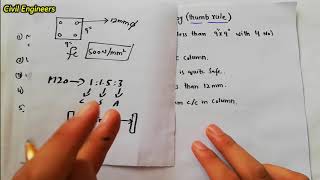 Civil Engineers
12mm φ
9"
9"
fc 500N/mm²
M20 → 1:1.5:3
C S A
(thumb rule)
less than 9"x9" with 4 No)
Column.
is quite safe.
than 12mm.
c/c in column.
1)
5.